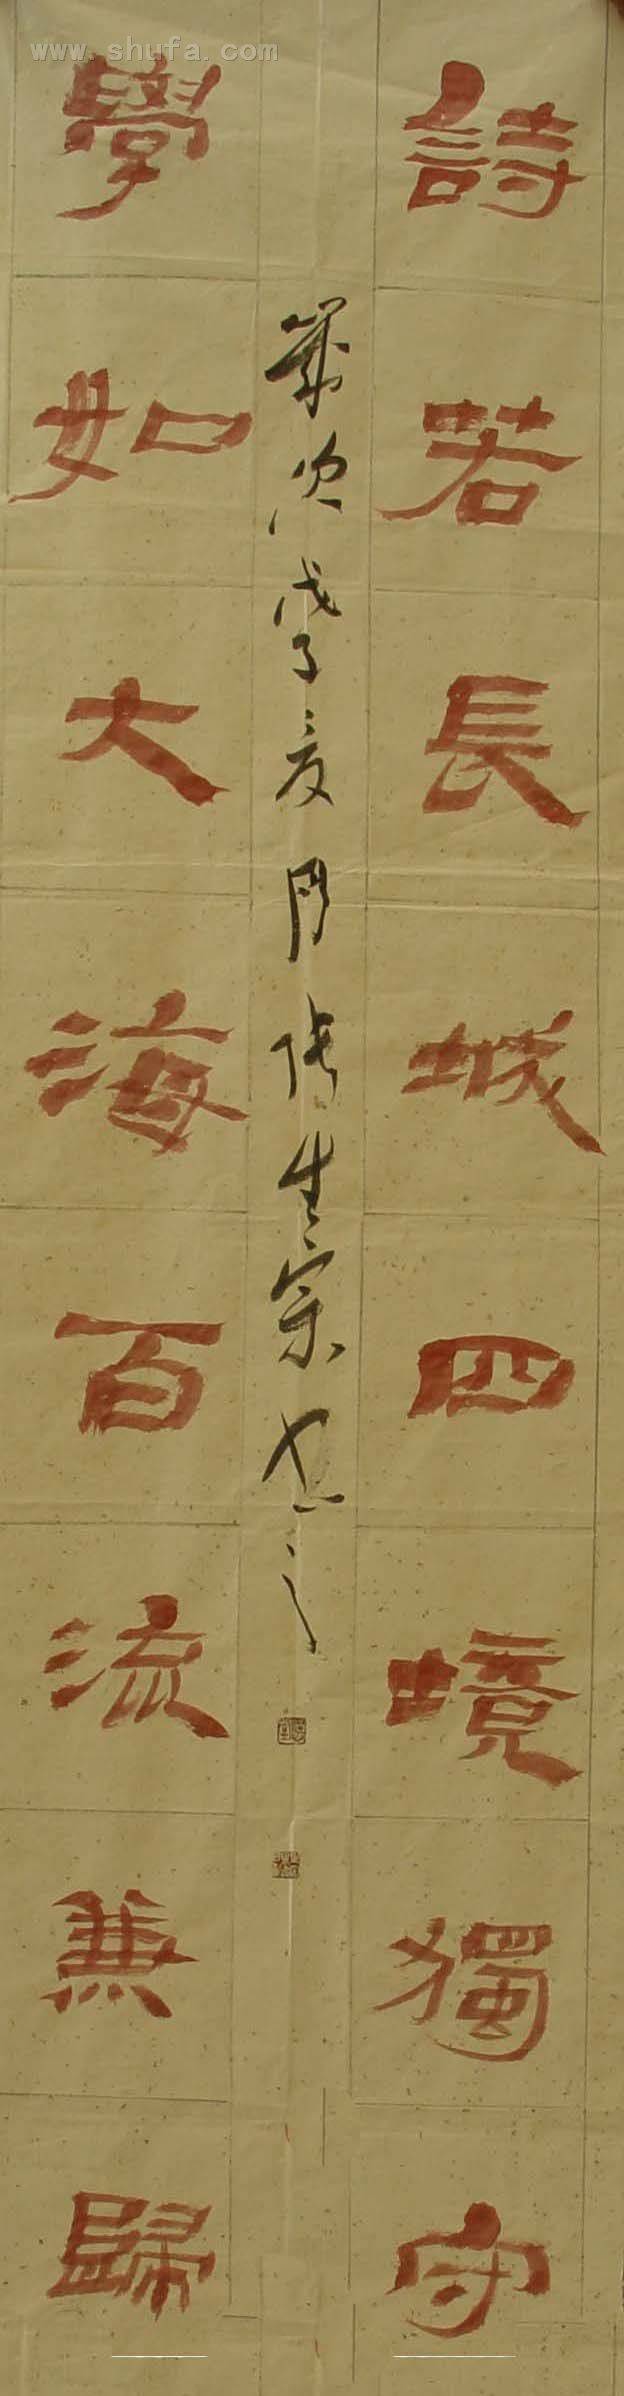 www.shufa.com
詩若長城四境獨守
歲次戊子夏月張生宗书之
學如大海百流兼歸